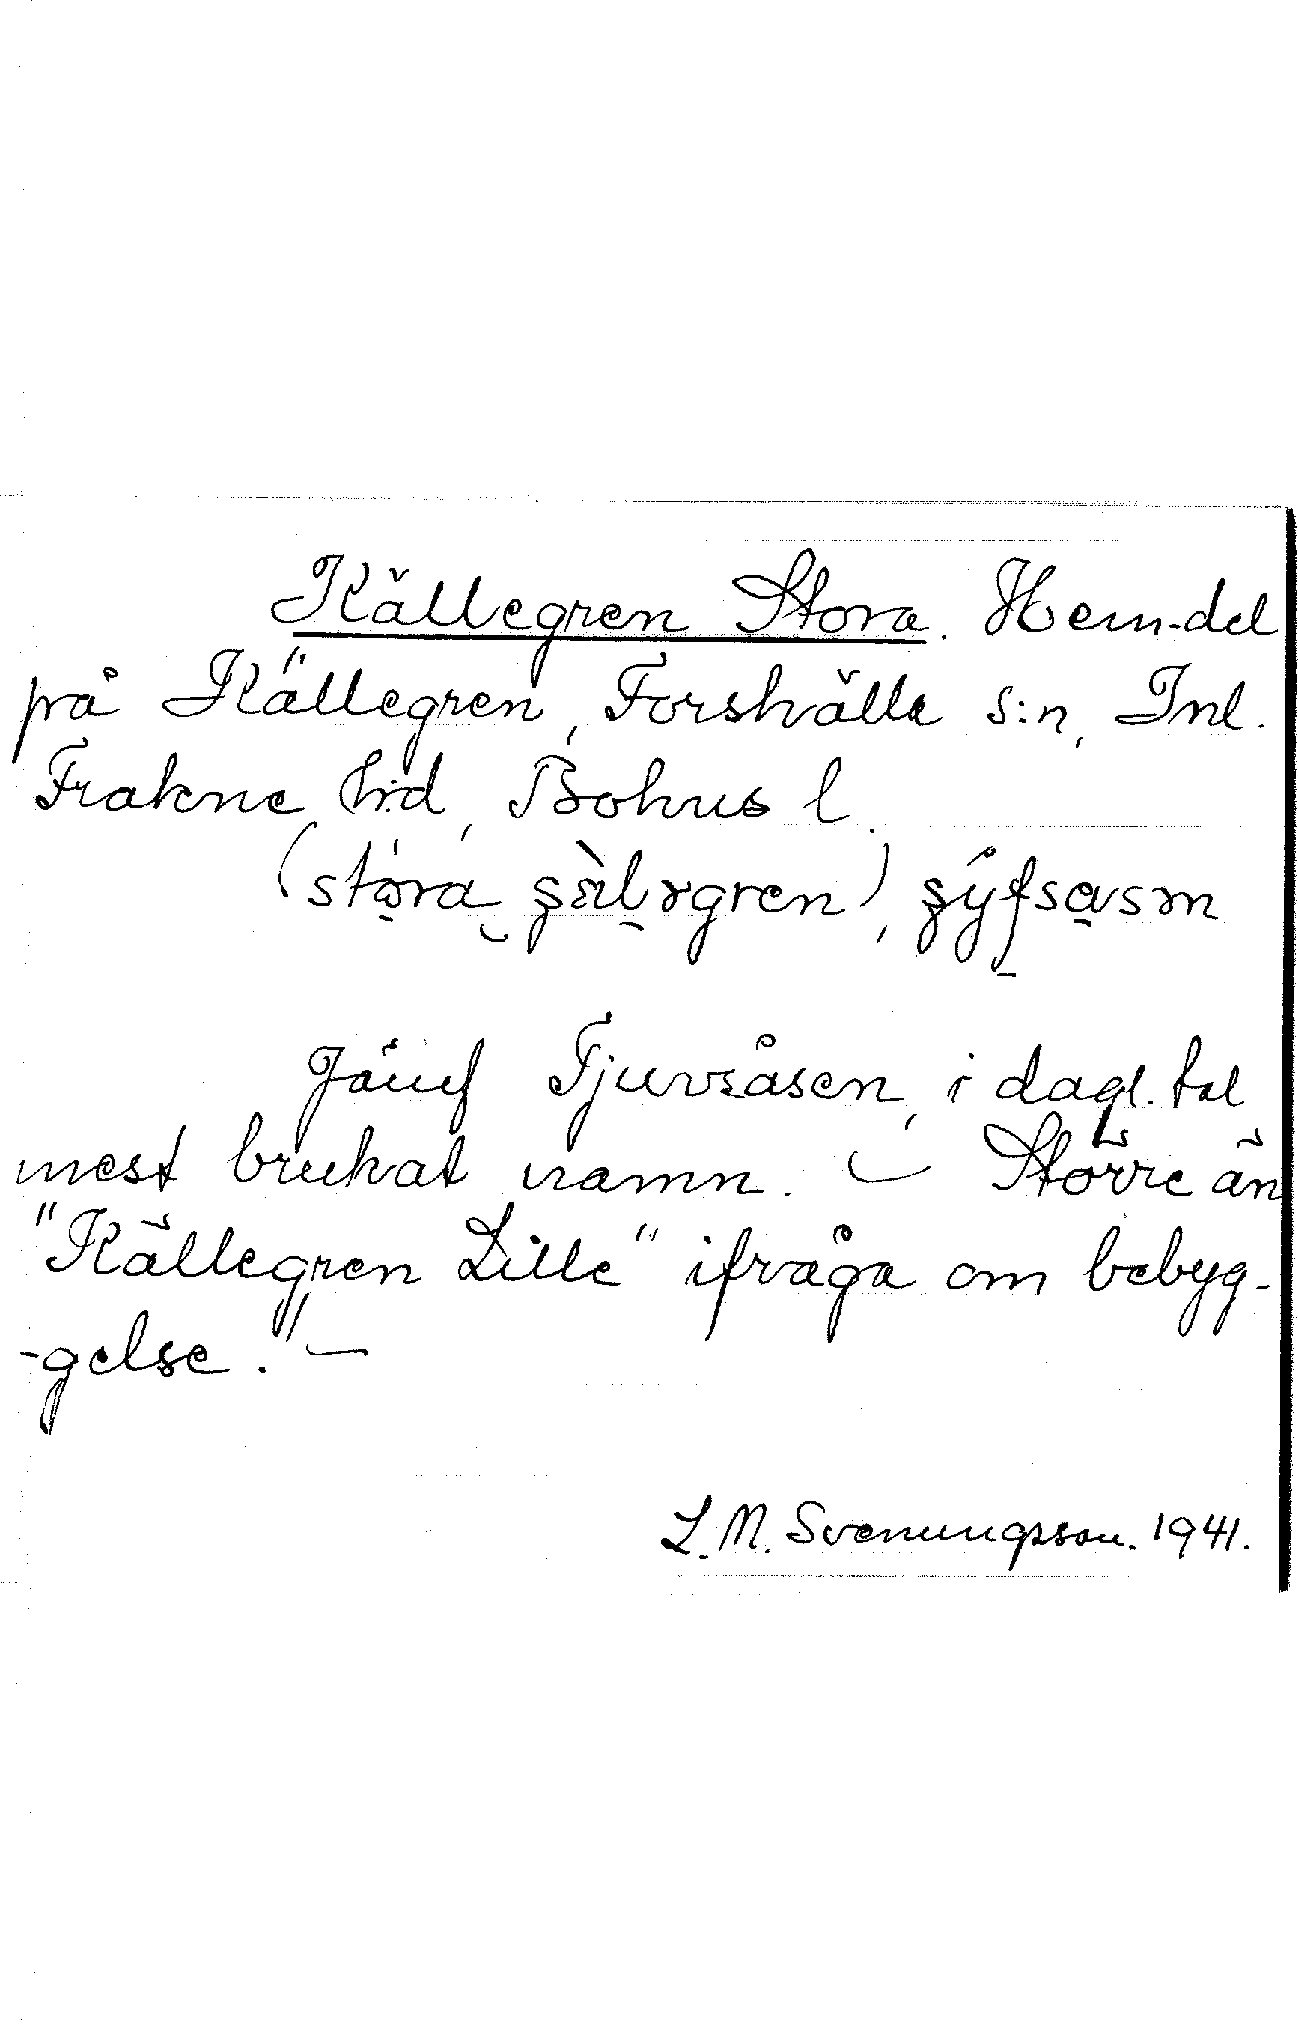 Källegren Stora. Hem-del
på Källegren, Forshälla s:n, Inl.
Frakne hrd, Bohus l.
(stora
Jämf Tjuvsåsen, i dagl. tal
mest brukat namn. – Större än
"Källegren Lille" ifråga om bebyg-
-gelse. –
L. M. Svenungsson. 1941.